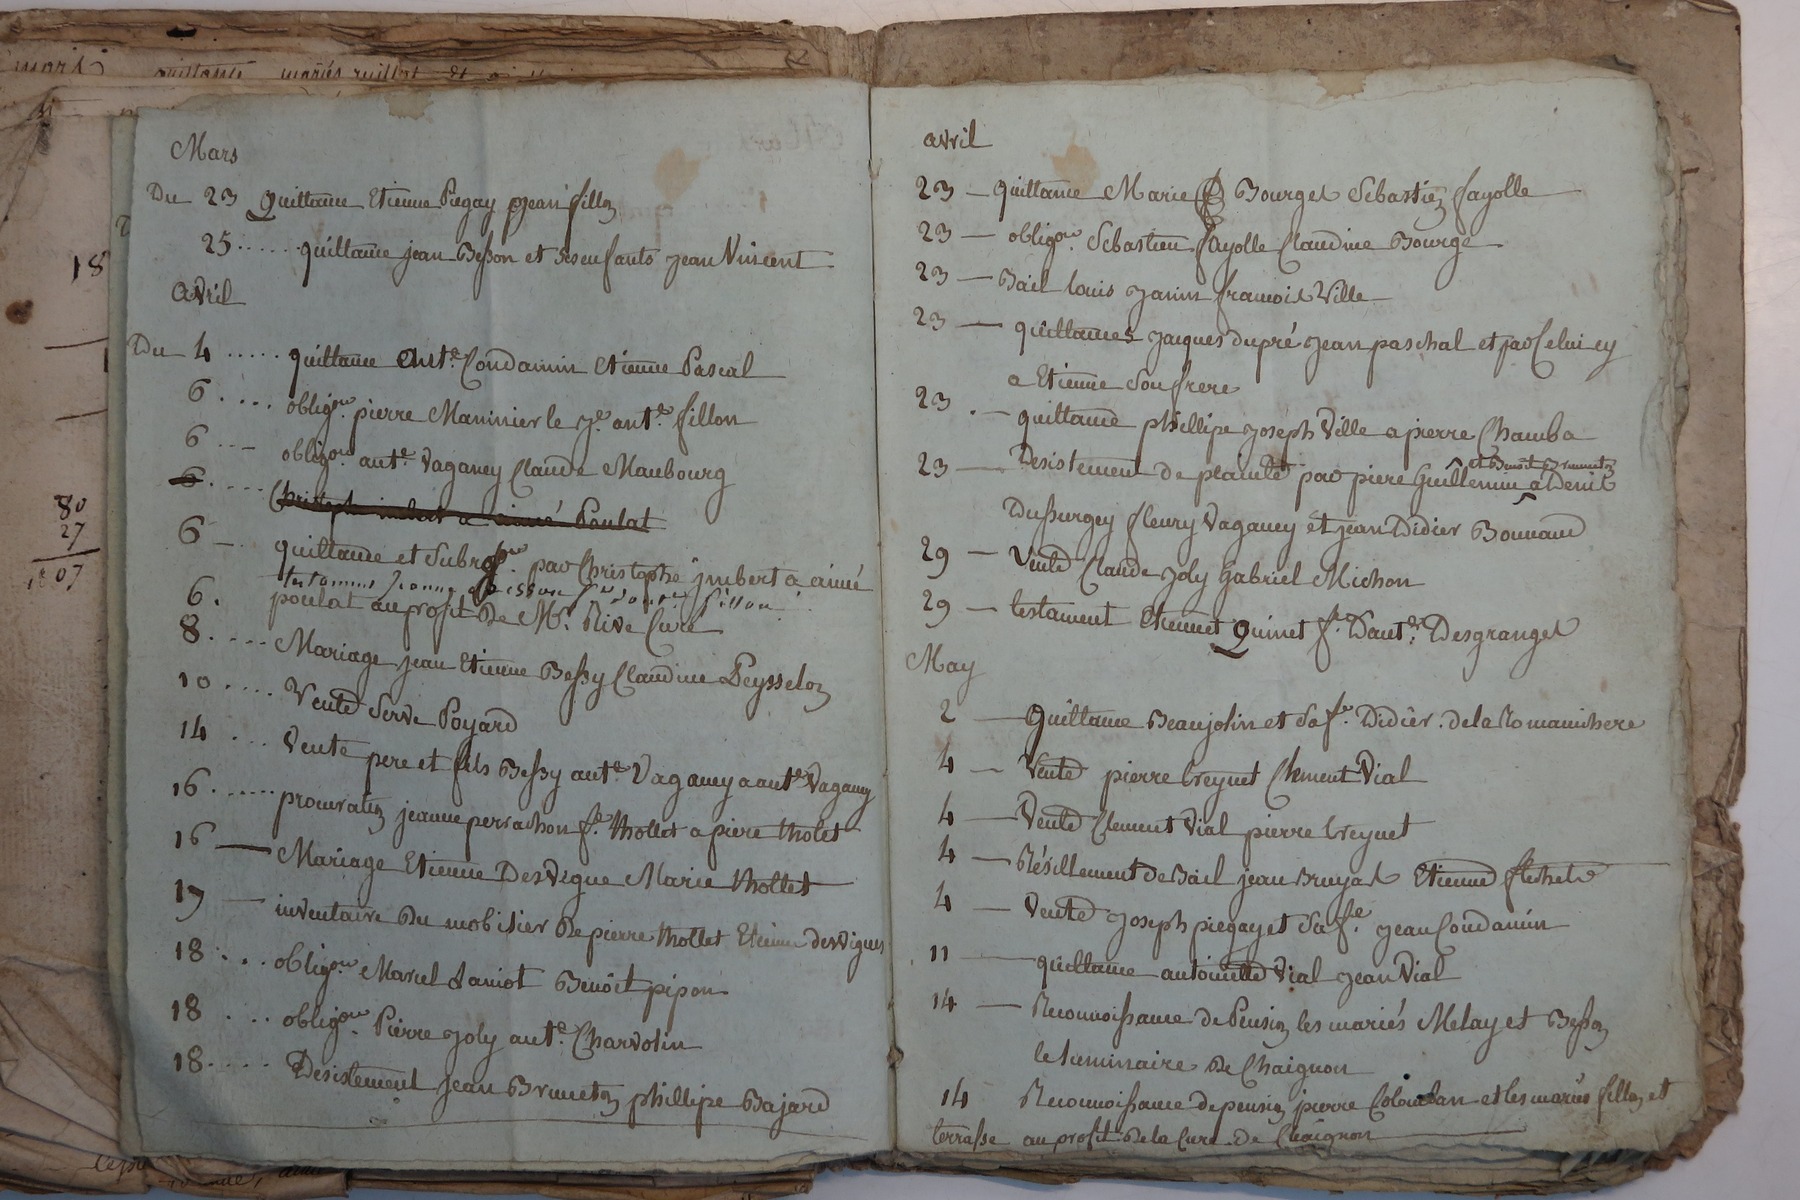 mars quittance mariés
18
80
27
107
Mars
Du 23 Quittance Etienne Piegay jean fillon
25 ...... quittance jean Besson et ses enfants jean Vincent
avril
Du 4 ..... quittance ant.e Condamin Etienne Pascal
6 .... oblig.on pierre Maninier le j.e ant.e fillon
6 ... oblig.on ant.e Vaganey Claude Maubourg
6 .... Christophe imbert a aimé Poulat
6 — quittance et subrog.on par Christophe jmbert a aimé
6. testament Jeanne f.e d'ant.e fillon
poulat au profit de M.r Rive Curé
8. ... Mariage jean Etienne Bessy Claudine Peysselon
10 .... Vente Serve Poyard
14 ... Vente pere et fils Bessy ant.e Vaganey a ant.e Vaganey
16 ...... procuration jeanne perrachon f.e thollet a piere tholet
16 — Mariage Etienne Desvigne Marie thollet
17 — inventaire du mobilier de pierre thollet Etienne desvignes
18 ... oblig.on Marcel Laniot Benoît pipon
18 ... oblig.on Pierre joly ant.e Charvolin
18 .... Desistement jean Bruneton phillipe Bajard
avril
23 — quittance Marie Bourget Sebastien fayolle
23 — oblig.on Sebastien fayolle Claudine Bourge
23 — Bail louis janin francois Ville
23 — quittances jacques dupré jean paschal et par Celui cy
a Etienne son frere
23 . — quittance phillipe joseph Ville a pierre Chamba
et Benoît Bruneton
23 — Desistement de plainte par piere Guillemin a Denis
Dussurgey fleury Vaganey et jean Didier Bonnand
29 — Vente Claude joly Gabriel Michon
29 — testament Etiennet Quinet f.e D'ant.e Desgranges
May
2 — Quittance Beaujolin et sa f.e Didier de la Romanichere
4 — Vente pierre Creynet Clement Vial
4 — Vente Clement Vial pierre Creynet
4 — Résillement de Bail jean Bruyas Etienne
4 — Vente joseph piegay et sa f.e jean Condamin
11 — quittance antoinette Vial jean Vial
14 — Reconnoissance de Pension les mariés Melay et Besson
le luminaire de Chaignon
14 Reconnoissance de pension pierre et les mariés fillon et
terrasse au profit de la Cure de Chaignon